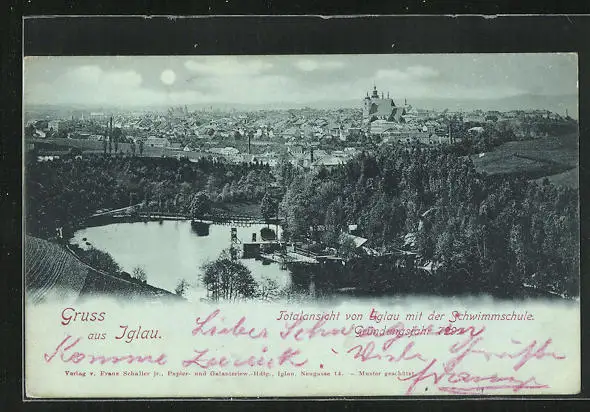 Gruss aus Iglau.
Totalansicht von Iglau mit der Schwimmschule.
Gründungsjahr
Lieber
Komme Zurück! Viele Grüße
Franz
Verlag v. Franz Schaller jr., Papier- und Galanteriew.-Hdlg., Iglau, Neugasse 14. — Muster geschützt.